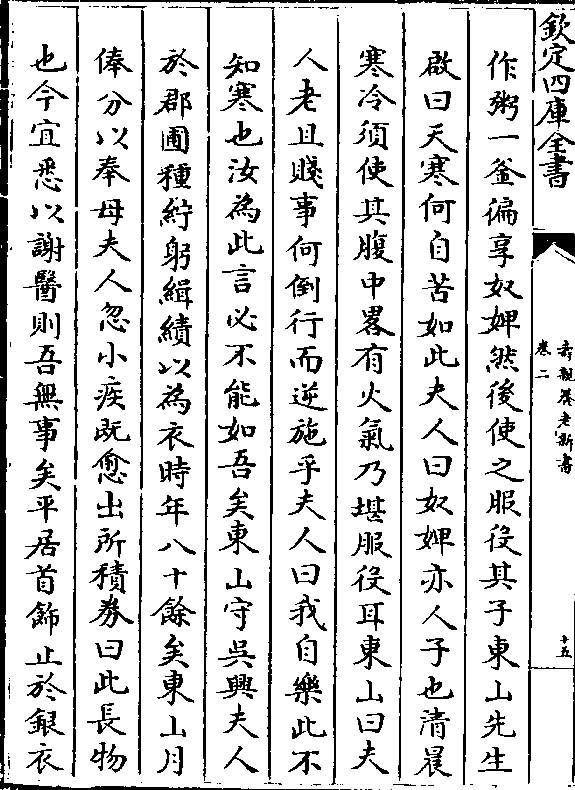 欽定四庫全書
壽親養老新書
卷二
十五
作粥一釜徧享奴婢然後使之服役其子東山先生
啟曰天寒何自苦如此夫人曰奴婢亦人子也清晨
寒冷須使其腹中畧有火氣乃堪服役耳東山曰夫
人老且賤事何倒行而逆施乎夫人曰我自樂此不
知寒也汝為此言必不能如吾矣東山守吳興夫人
於郡圃種紵躬緝績以為衣時年八十餘矣東山月
俸分以奉母夫人忽小疾既愈出所積劵曰此長物
也今宜悉以謝醫則吾無事矣平居首飾止於銀衣